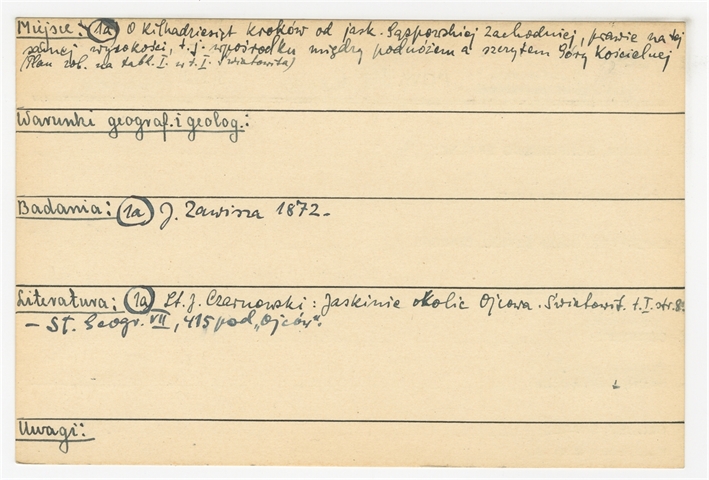 Miejsce: (1a) O kilkadziesiąt kroków od jask. Sąspowskiej Zachodniej, prawie na tej
samej wysokości, t.j. wpośrodku między podnóżem a szczytem Góry Kościelnej
(Plan zob. na tabl. I. w t. I. Światowita)
Warunki geograf. i geolog.:
Badania: (1a) J. Zawisza 1872.-
Literatura: (1a) St. J. Czarnowski: Jaskinie okolic Ojcowa. Światowit. t. I. str. 8.
- Sł. Geogr. VII, 415 pod „Ojców".
Uwagi: